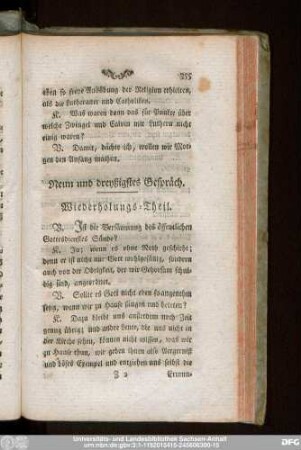 255
eben so freye Ausübung der Religion erhielten,
als die Lutheraner und Catholiken.
K. Was waren dann das für Punkte über
welche Zwingel und Calvin mit Luthern nicht
einig waren?
V. Damit, dächte ich, wollen wir Mor-
gen den Anfang machen.
Neun und dreyßigstes Gespräch.
Wiederholungs-Theil.
V. Ist die Versäumung des öffentlichen
Gottesdienstes Sünde?
K. Ja; wenn es ohne Noth geschieht;
denn er ist nicht nur Gott wohlgefällig, sondern
auch von der Obrigkeit, der wir Gehorsam schul-
dig sind, angeordnet.
V. Sollte es Gott nicht eben so angenehm
seyn, wenn wir zu Hause singen und beteten?
K. Dazu bleibt uns außerdem noch Zeit
genug übrig; und andre Leute, die uns nicht in
der Kirche sehen, können nicht wissen, was wir
zu Hause thun, wir geben ihnen also Aergerniß
und böses Exempel und entziehen uns selbst die
Z 2
Universitäts- und Landesbibliothek Sachsen-Anhalt
DFG